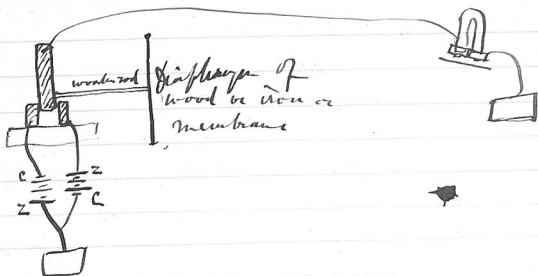 wooden rod
Diaphragm of
wood or iron or
membrane
C
Z
Z
C